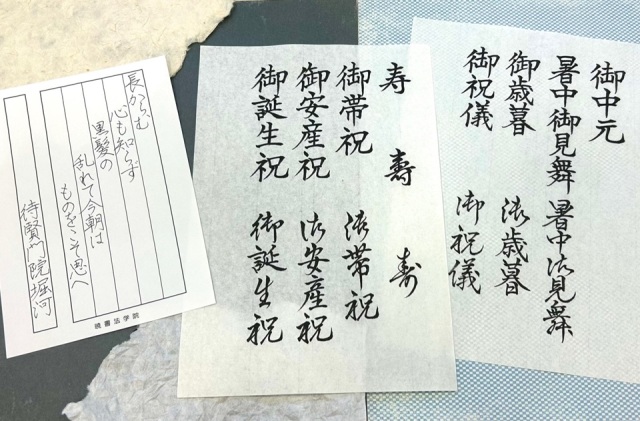 御中元
暑中御見舞 暑中御見舞
御歳暮 御歳暮
御祝儀 御祝儀
寿 寿 寿
御帯祝 御帯祝
御安産祝 御安産祝
御誕生祝 御誕生祝
長からむ
心も知らず
黒髪の
乱れて今朝は
ものをこそ思へ
待賢門院堀河
暁書法学院